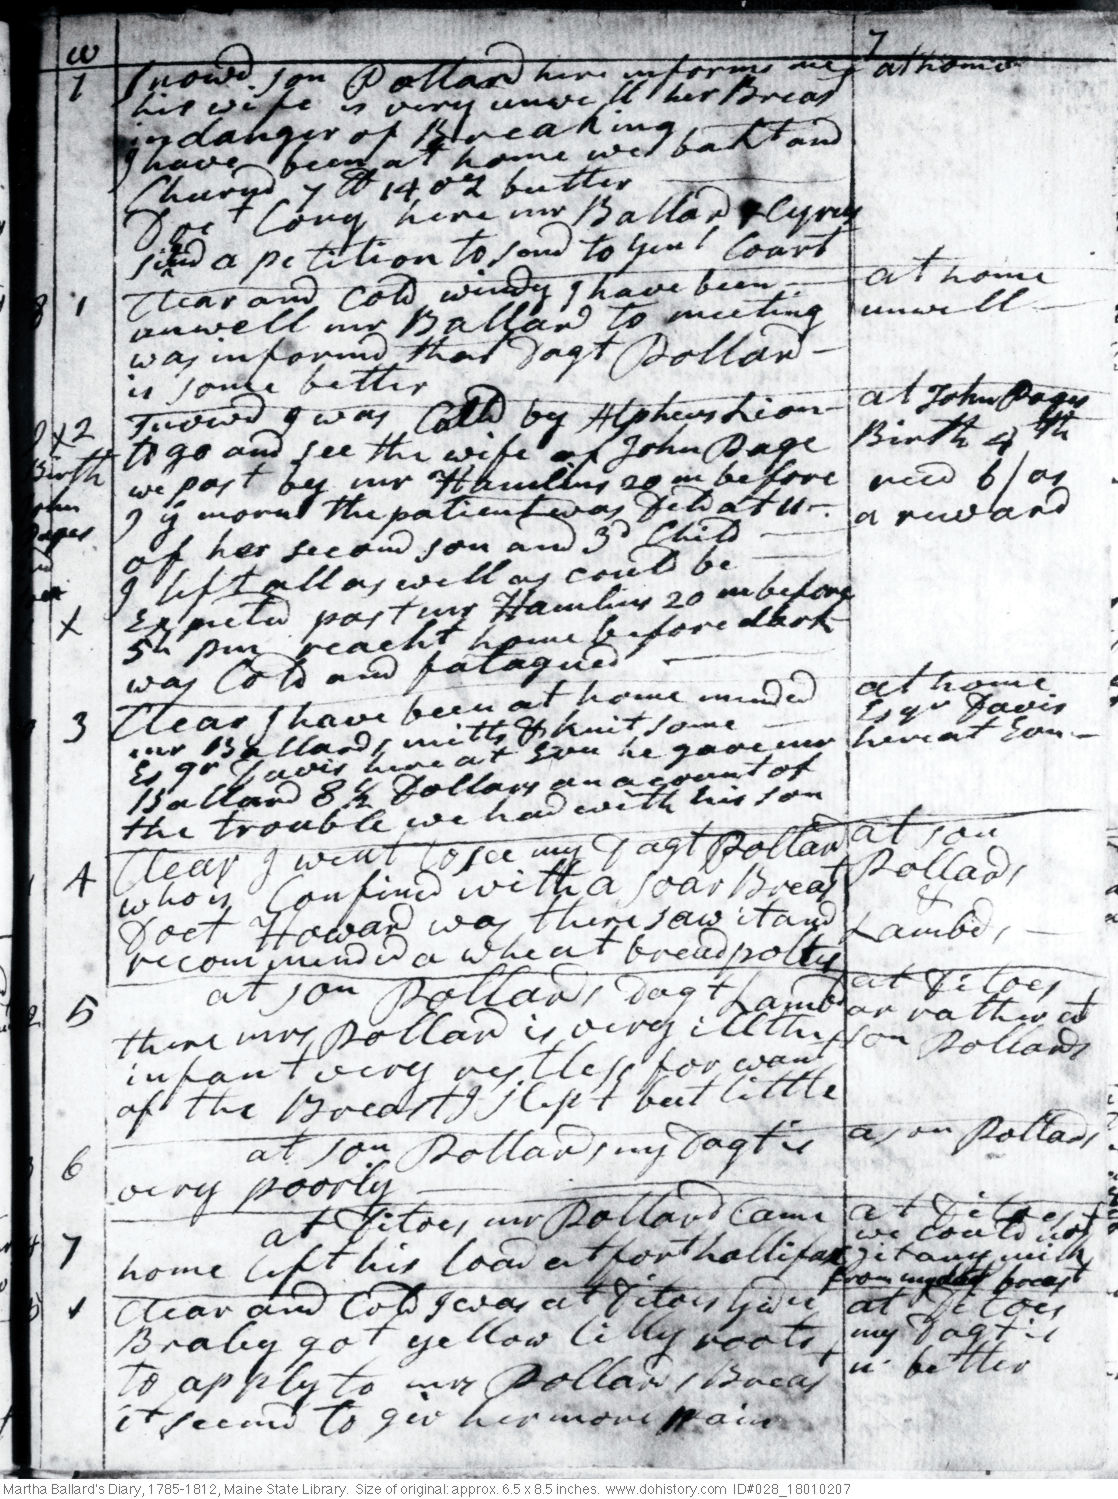 w
7
7 Snowd. son Pollard here informs me
his wife is very unwell her Breast
in danger of Breaking
I have been at home we bakt and
Churnd 7 lb 14 oz butter
Doct Cony here mr Ballard & Cyrus
signd a petition to send to Genl Court
at home
1 Clear and Cold windy I have been
unwell mr Ballard to meeting
was informd that Dagt Pollard
is some better
at home
unwell
x 2 Snowd I was Calld by Alpheus Lion
to go and see the wife of John Page
we past by mr Hamlins 20 m before
ys morn the patient was Deld at 11
of her second son and 3d Child
I left all as well as could be
x Expected past mr Hamlins 20 m before
5 h pm reacht home before dark
was Cold and fatagued
at John Pages
Birth 4th
recd 6/ as
a reward
Birth
Pages
3 Clear I have been at home minded
mr Ballards mitts & knit some
Esqr Davis here at Evn he gave mr
Ballard 8 1/2 Dollars on acount of
the trouble we had with his son
at home
Esqr Davis
here at Evn
4 Clear I went to see my Dagt Pollard
who is Confined with a soar Breast
Doct Howard was there saw it and
recommended a wheat bread poltis
at son
Pollards
&
Lambds
5 at son Pollards Dagt Lambd
there mrs Pollard is very ill the
infant very restless for want
of the Breast I slept but little
at Ditoes
or rather at
son Pollards
6 at son Pollards my Dagt is
very poorly
a son Pollards
7 at Ditoes mr Pollard Came
home left his load at fort hallifax
at Ditoes
we could not
git any milk
from my dagt breast
1 Clear and Cold I was at Ditoes
Braley got yellow lilly roots
to apply to mrs Pollards Breast
it seemd to giv her more pain
at Ditoes
my Dagt is
no better
Martha Ballard's Diary, 1785-1812, Maine State Library. Size of original: approx. 6.5 x 8.5 inches. www.dohistory.com ID#028_18010207